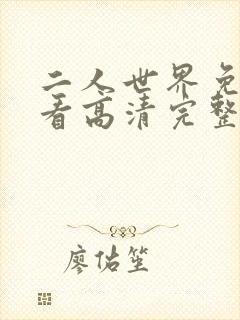 二人世界免
看高清完整
廖估笙